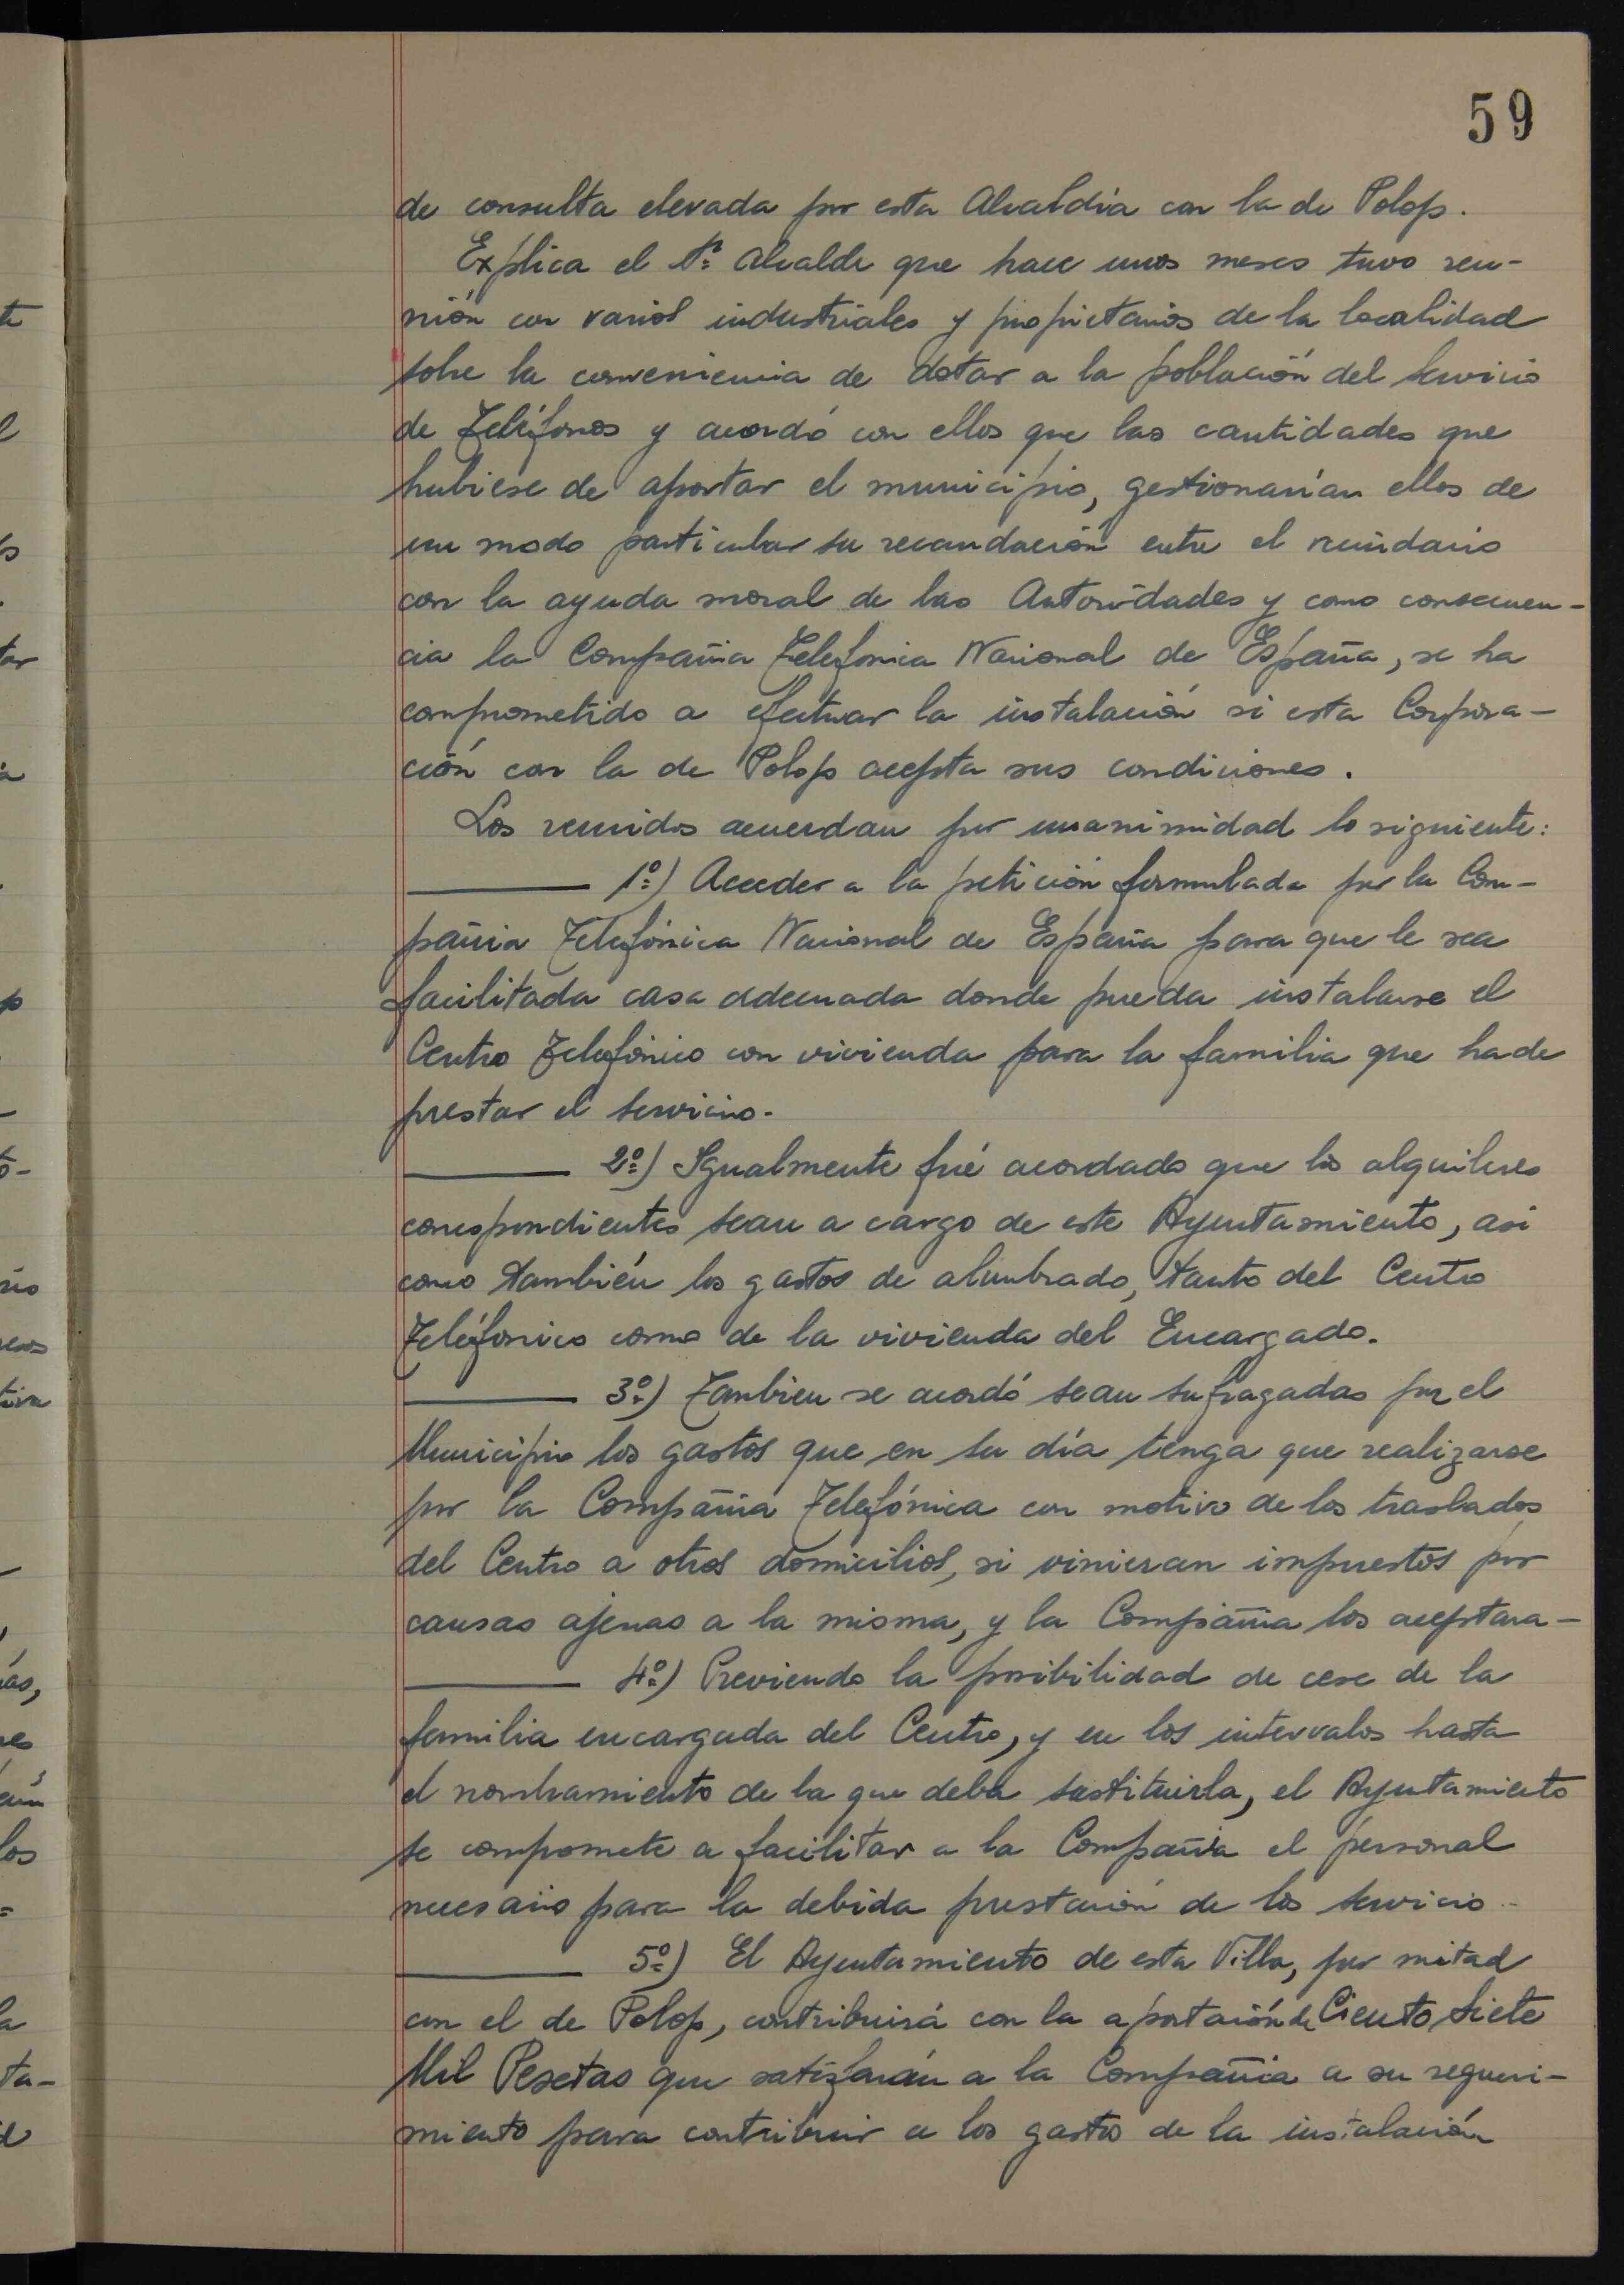 59
de consulta elevada por esta Alcaldía con la de Polop.
Explica el Sr. Alcalde que hace unos meses tuvo reu-
nión con varios industriales y propietarios de la localidad
sobre la conveniencia de dotar a la población del servicio
de Teléfonos y acordó con ellos que las cantidades que
hubiese de aportar el municipio, gestionarían ellos de
un modo particular su recaudación entre el vecindario
con la ayuda moral de las Autoridades y como consecuen-
cia la Compañia Telefonica Nacional de España, se ha
comprometido a efectuar la instalación si esta Corpora-
ción con la de Polop acepta sus condiciones.
Los reunidos acuerdan por unanimidad lo siguiente:
1º) Acceder a la petición formulada por la Com-
pañia Telefónica Nacional de España para que le sea
facilitada casa adecuada donde pueda instalarse el
Centro Telefónico con vivienda para la familia que ha de
prestar el servicio.-
2º) Igualmente fué acordado que los alquileres
correspondientes sean a cargo de este Ayuntamiento, asi
como también los gastos de alumbrado, tanto del Centro
Teléfonico como de la vivienda del Encargado.
3º) Tambien se acordó sean sufragadas por el
Municipio los gastos que en su día tenga que realizarse
por la Compañía Telefónica con motivo de los traslados
del Centro a otros domicilios, si vinieran impuestos por
causas ajenas a la misma, y la Compañia los aceptara-
4º) Previendo la posibilidad de cese de la
familia encargada del Centro, y en los intervalos hasta
el nombramiento de la que deba sustituirla, el Ayuntamiento
se compromete a facilitar a la Compañia el personal
necesario para la debida prestación de los servicio.-
5º) El Ayuntamiento de esta Villa, por mitad
con el de Polop, contribuirá con la aportación de Ciento Siete
Mil Pesetas que satisfarán a la Compañia a su requeri-
miento para contribuir a los gastos de la instalación